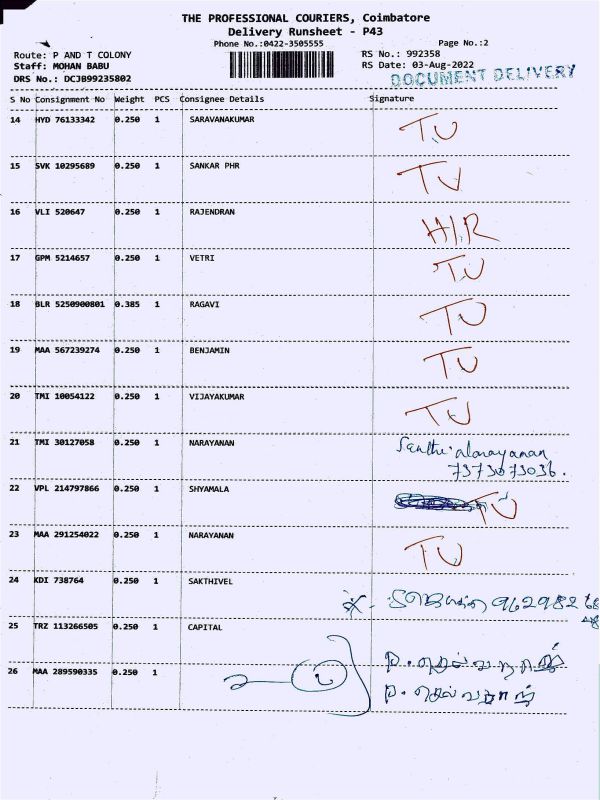 THE PROFESSIONAL COURIERS, Coimbatore
Delivery Runsheet - P43
Phone No.:0422-3505555
Page No.:2
Route: P AND T COLONY
RS No.: 992358
Staff: MOHAN BABU
RS Date: 03-Aug-2022
DRS No.: DCJB99235802
DOCUMENT DELIVERY
S No Consignment No Weight PCS Consignee Details Signature
14 HYD 76133342 0.250 1 SARAVANAKUMAR TU
15 SVK 10295689 0.250 1 SANKAR PHR TU
16 VLI 520647 0.250 1 RAJENDRAN H/R
17 GPM 5214657 0.250 1 VETRI TU
18 BLR 5250900801 0.385 1 RAGAVI TU
19 MAA 567239274 0.250 1 BENJAMIN TU
20 TMI 10054122 0.250 1 VIJAYAKUMAR TU
21 TMI 30127058 0.250 1 NARAYANAN
7373073036.
22 VPL 214797866 0.250 1 SHYAMALA TU
23 MAA 291254022 0.250 1 NARAYANAN TU
24 KDI 738764 0.250 1 SAKTHIVEL
25 TRZ 113266505 0.250 1 CAPITAL
26 MAA 289590335 0.250 1